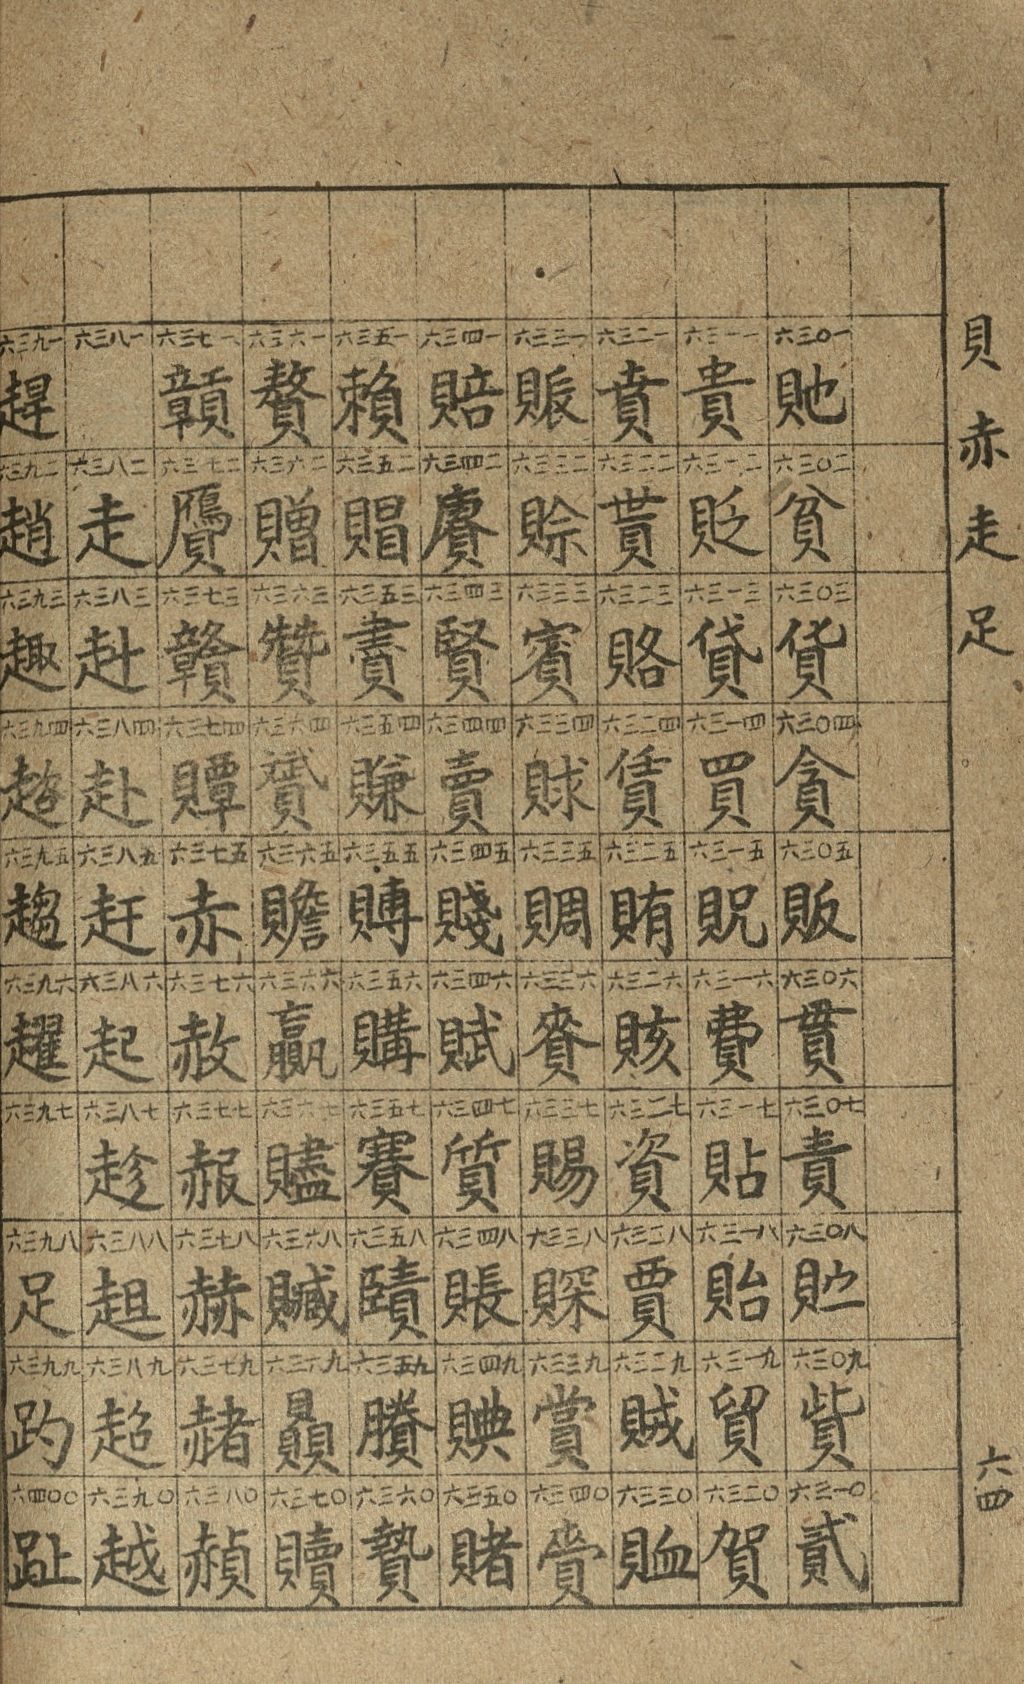 貝赤走足
六四
六三〇一 貤
六三〇二 貧
六三〇三 貨
六三〇四 貪
六三〇五 販
六三〇六 貫
六三〇七 責
六三〇八 貯
六三〇九 貲
六三一〇 貳
六三一一 貴
六三一二 貶
六三一三 貸
六三一四 買
六三一五 貺
六三一六 費
六三一七 貼
六三一八 貽
六三一九 貿
六三二〇 賀
六三二一 賁
六三二二 貰
六三二三 賂
六三二四 賃
六三二五 賄
六三二六 賅
六三二七 資
六三二八 賈
六三二九 賊
六三三〇 賉
六三三一 賑
六三三二 賒
六三三三 賓
六三三四 賕
六三三五 賙
六三三六 賚
六三三七 賜
六三三八 賝
六三三九 賞
六三四〇 賡
六三四一 賠
六三四二 賡
六三四三 賢
六三四四 賣
六三四五 賤
六三四六 賦
六三四七 質
六三四八 賬
六三四九 賟
六三五〇 賭
六三五一 賴
六三五二 賵
六三五三 賮
六三五四 賺
六三五五 賻
六三五六 購
六三五七 賽
六三五八 賾
六三五九 賸
六三六〇 贄
六三六一 贅
六三六二 贈
六三六三 贊
六三六四 贇
六三六五 贍
六三六六 贏
六三六七 贐
六三六八 贓
六三六九 贔
六三七〇 贖
六三七一 贑
六三七二 贗
六三七三 贛
六三七四 贉
六三七五 赤
六三七六 赦
六三七七 赧
六三七八 赫
六三七九 赭
六三八〇 赬
六三八一
六三八二 走
六三八三 赳
六三八四 赴
六三八五 赶
六三八六 起
六三八七 趁
六三八八 趄
六三八九 超
六三九〇 越
六三九一 趕
六三九二 趙
六三九三 趣
六三九四 趦
六三九五 趨
六三九六 趯
六三九七
六三九八 足
六三九九 趵
六四〇〇 趾